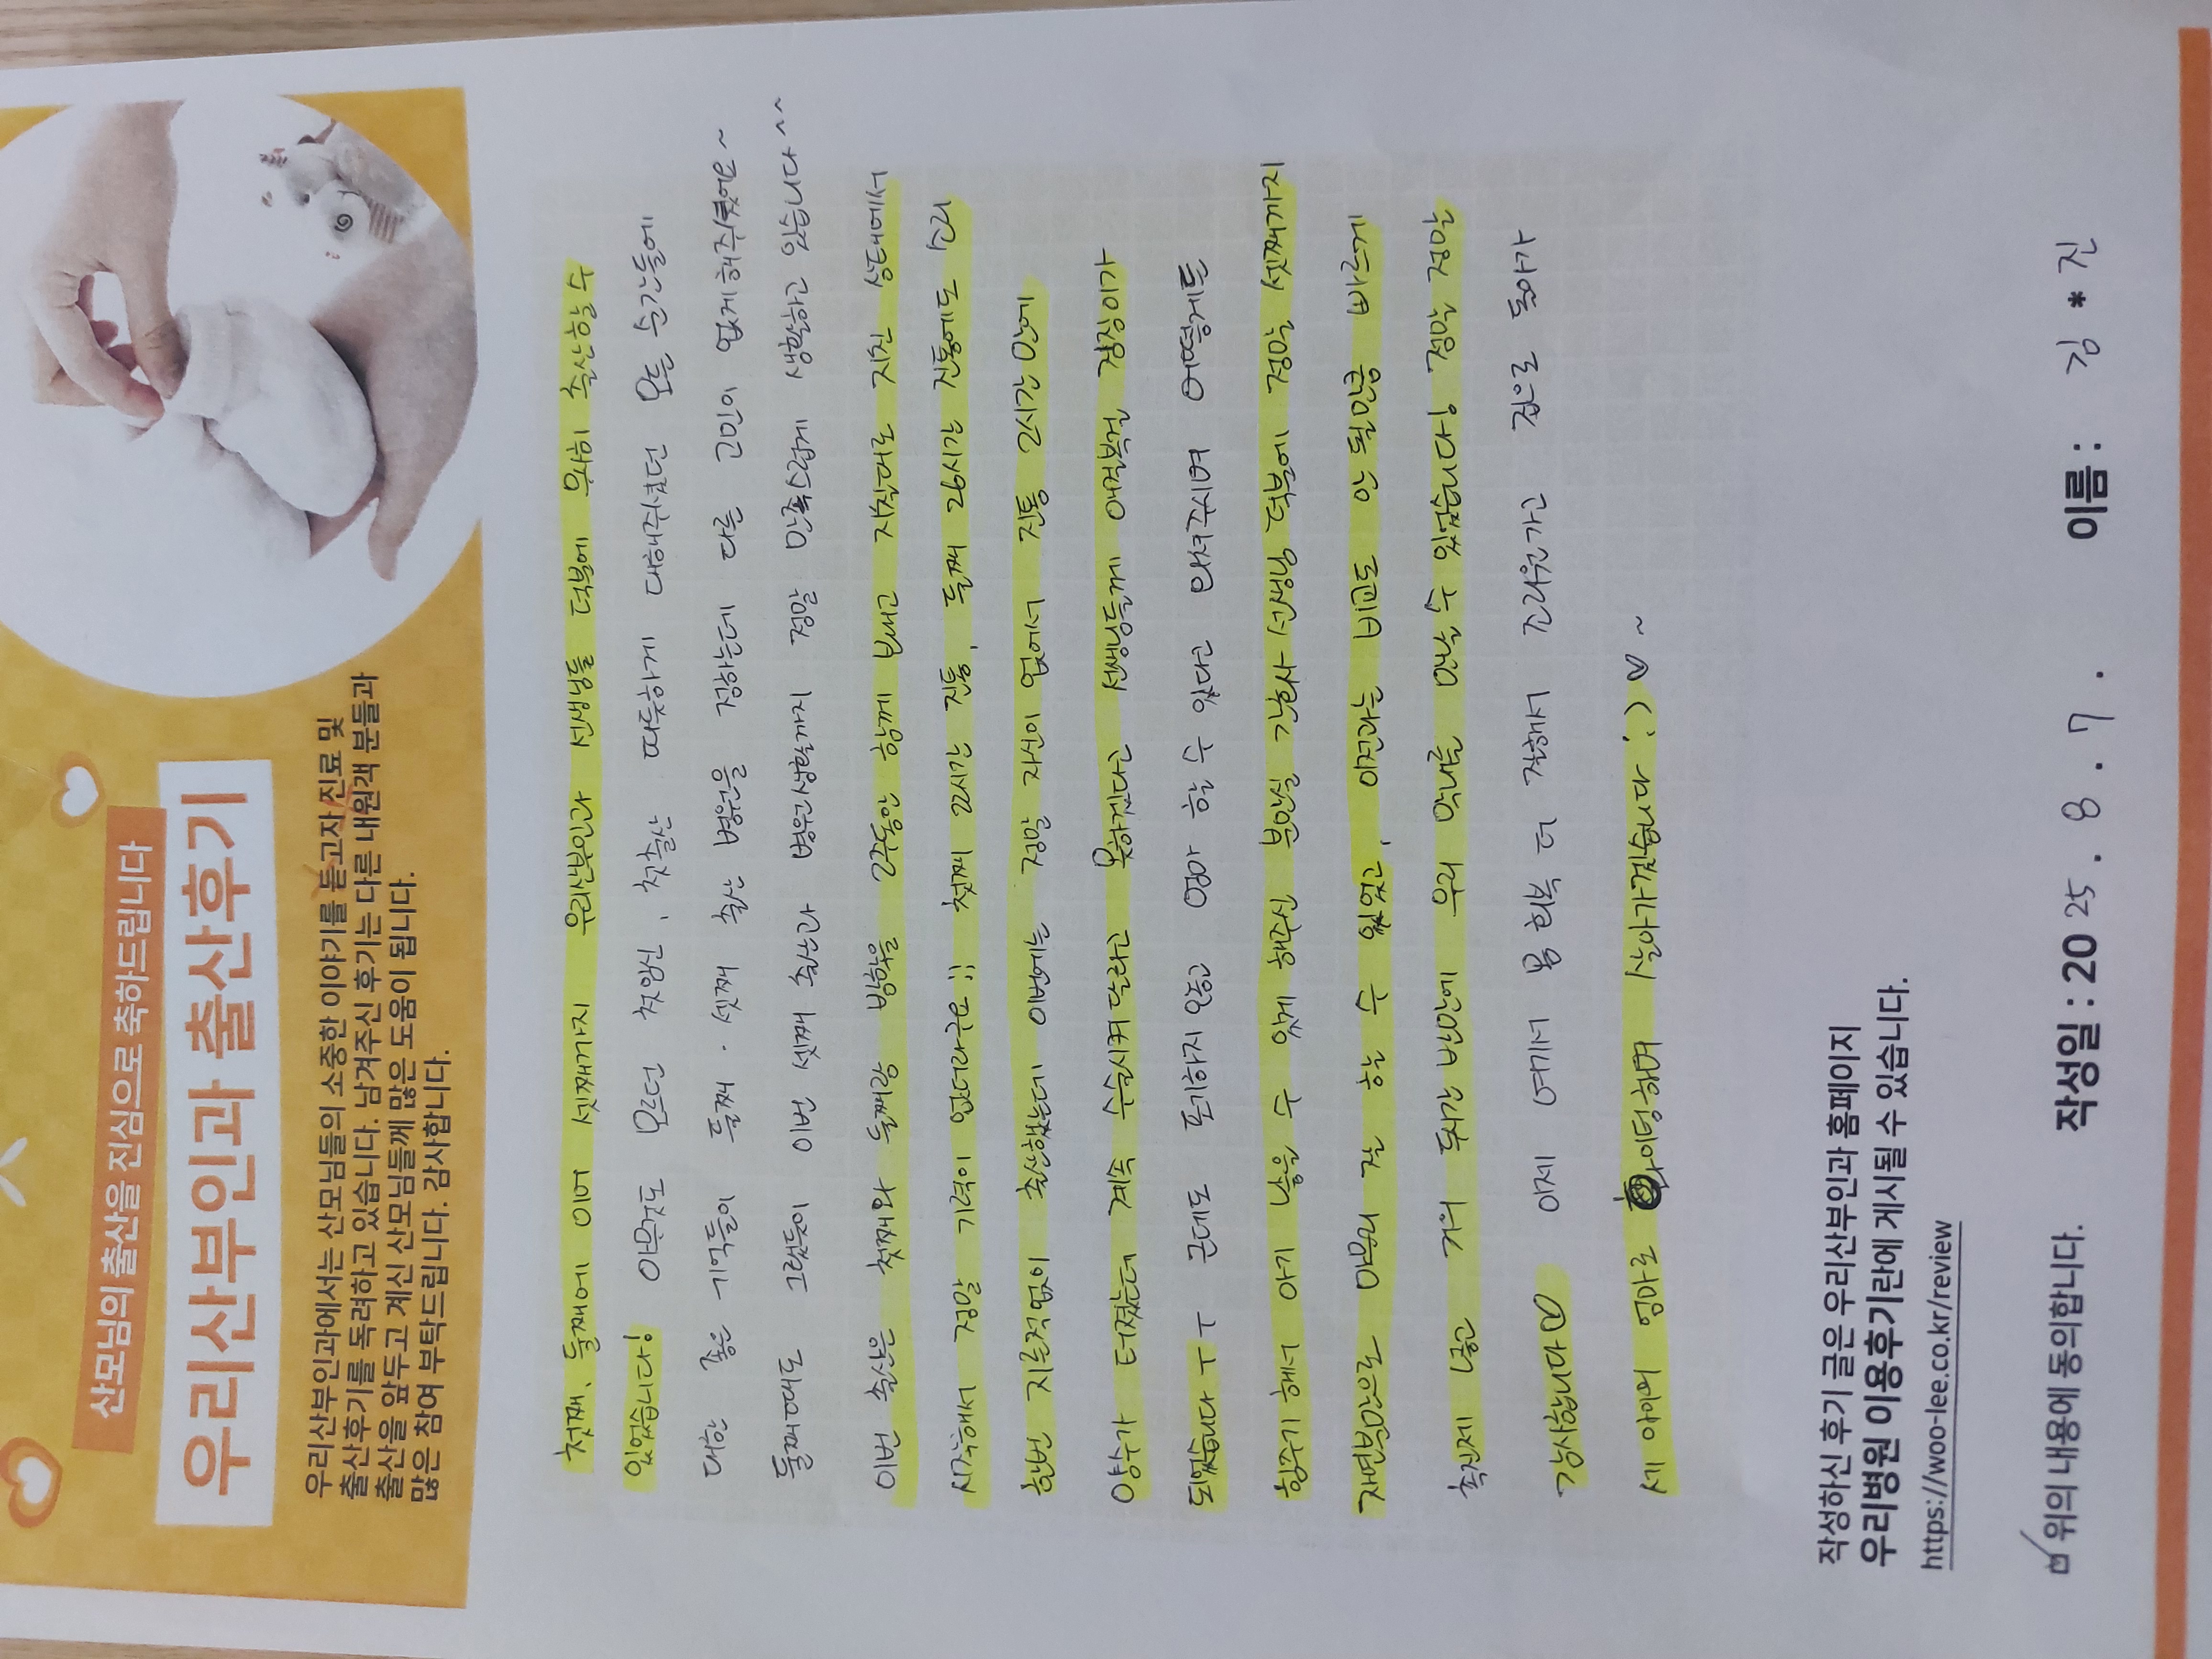 산모님의 출산을 진심으로 축하드립니다
우리산부인과 출산후기
우리산부인과에서는 산모님들의 소중한 이야기를 듣고자 진료 및
출산후기를 독려하고 있습니다. 남겨주신 후기는 다른 내원객 분들과
출산을 앞두고 계신 산모님들께 많은 도움이 됩니다.
많은 참여 부탁드립니다. 감사합니다.
첫째, 둘째에 이어 셋째까지 우리산부인과 선생님들 덕분에 무사히 출산할 수
있었습니다! 아무것도 모르던 첫임신, 첫출산 따뜻하게 대해주셨던 모든 순간들에
대한 좋은 기억들이 둘째·셋째 출산 병원을 정하는데 다른 고민이 없게 해주셨어요~
둘째때도 그랬듯이 이번 셋째 출산과 병원생활까지 정말 만족스럽게 생활하고 있습니다~~
이번 출산은 첫째와 둘째랑 방학을 2주동안 함께 보내고 지칠대로 지친 상태에서
시작해서 정말 기력이 없더라구요!! 첫째 22시간 진통, 둘째 26시간 진통에도 소리
한번 지른적없이 출산했는데 이번에는 정말 자신이 없어서 진통 2시간 만에
양수가 터졌는데 계속 수술시켜 달라고 못하겠다는 선생님들께 애걸복걸 징징이가
되었습니다 ㅜㅜ 근데도 포기하지 않고 엄마 할 수 있다고 하셔주시며 어떻게든
힘주기 해서 아기 낳을 수 있게 해주신 분만실 간호사 선생님 덕분에 정말 셋째까지
자연분만으로 마무리 잘 할 수 있었고, 이전과는 비교도 안 될만큼 빠르게
촉진제 넣고 거의 두시간 반만에 우리 막내를 만날 수 있었습니다! 정말 정말
감사합니다♡ 이제 여기서 몸 회복 더 잘해서 조리원가고 집으로 돌아가
세 아이의 엄마로 화이팅하며 살아가겠습니다 :) ♡~
작성하신 후기 글은 우리산부인과 홈페이지
우리병원 이용후기란에 게시될 수 있습니다.
https://woo-lee.co.kr/review
위의 내용에 동의합니다. 작성일 : 2025. 8. 7. 이름 : 김*진